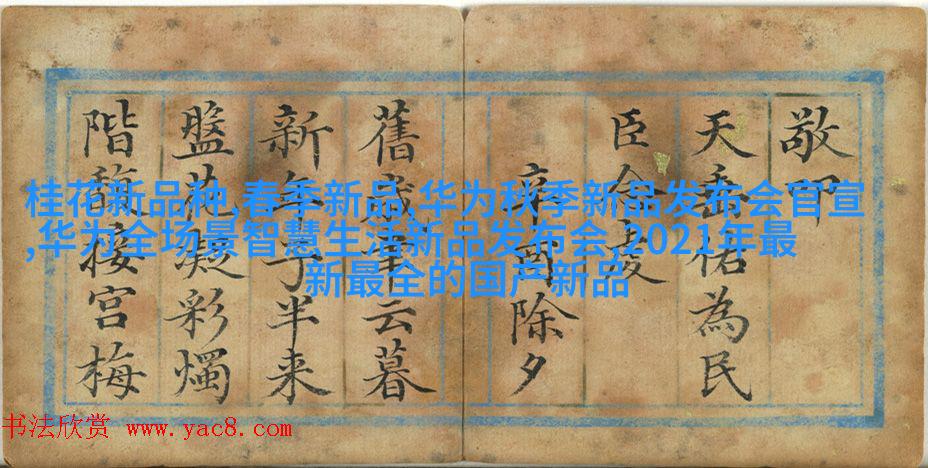 敬叩
天祐為民
臣
辛酉除夕
舊歲聿云暮
新年子半来
盤花凝彩燭
階接宮梅
桂花新品种,春季新品,华为秋季新品发布会官宣
,华为全场景智慧生活新品发布会,2021年最
新最全的国产新品
书法欣赏 www.yac8.com